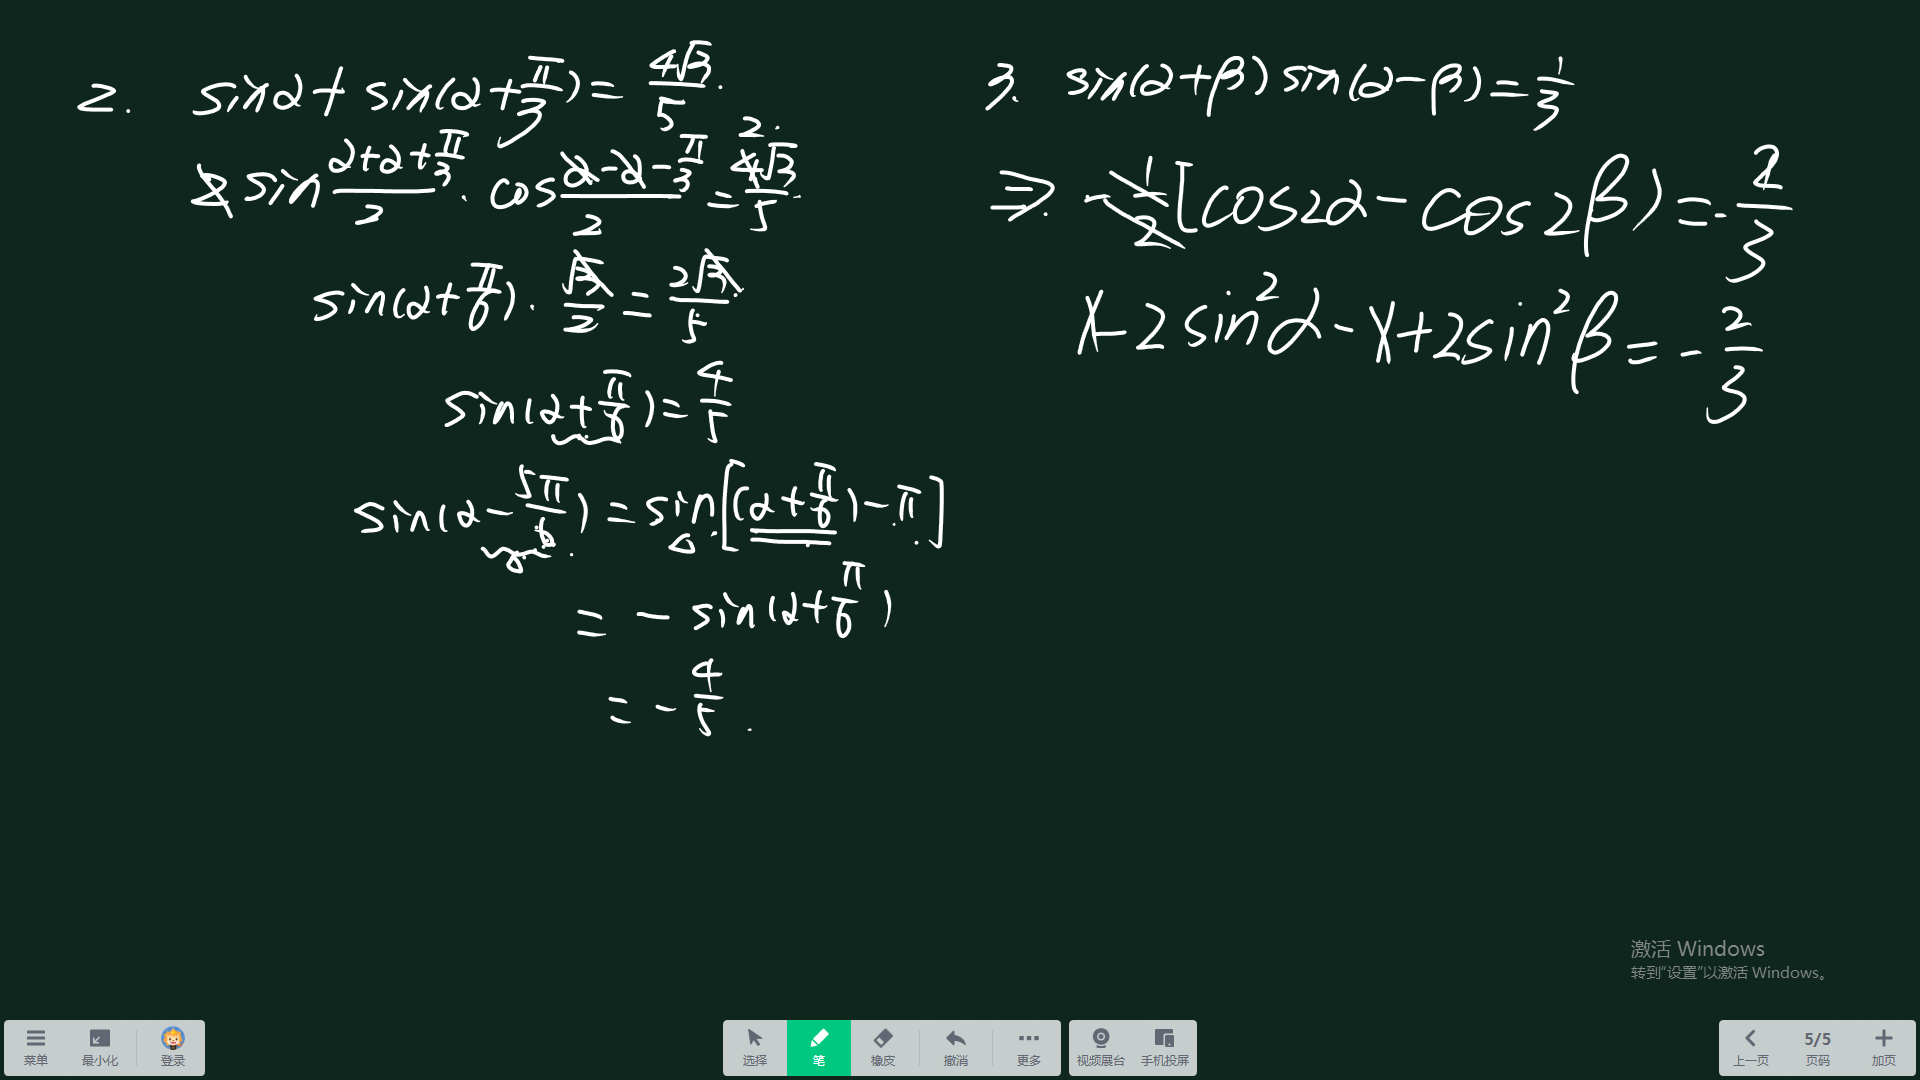 2. sinα + sin(α+π/3) = 4√3/5.
2 sin (α+α+π/3)/2 · cos (α-α-π/3)/2 = 4√3/5 2.
sin(α+π/6) · √3/2 = 2√3/5
sin(α+π/6) = 4/5
sin(α-5π/6) = sin[(α+π/6)-π]
= - sin(α+π/6)
= -4/5.
3. sin(α+β) sin(α-β) = 1/3
⇒ -1/2 [cos2α - cos2β) = -2/3
1-2sin²α-1+2sin²β = -2/3
激活 Windows
转到"设置"以激活 Windows。
菜单 最小化 登录 选择 笔 橡皮 撤消 更多 视频展台 手机投屏 上一页 5/5 页码 加页